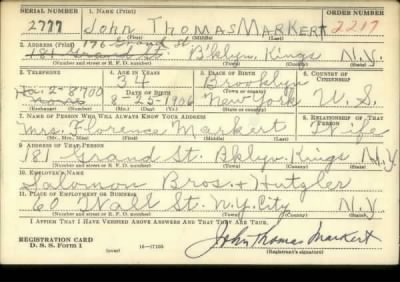 SERIAL NUMBER 1. NAME (Print) ORDER NUMBER
2777 John Thomas Markert 2217
(First) (Middle) (Last)
2. ADDRESS (Print) 176 Grand St
181 Grand St. B'klyn, Kings N.Y.
(Number and street or R. F. D. number) (Town) (County) (State)
3. TELEPHONE 4. AGE IN YEARS 5. PLACE OF BIRTH 6. COUNTRY OF CITIZENSHIP
Ha. 2-8700 34 Brooklyn
none DATE OF BIRTH (Town or county)
3-25-1906 New York U. S.
(Exchange) (Number) (Mo.) (Day) (Yr.) (State or country)
7. NAME OF PERSON WHO WILL ALWAYS KNOW YOUR ADDRESS 8. RELATIONSHIP OF THAT PERSON
Mrs. Florence Markert Wife
(Mr., Mrs., Miss) (First) (Middle) (Last)
9. ADDRESS OF THAT PERSON
181 Grand St. Bklyn. Kings N.Y
(Number and street or R. F. D. number) (Town) (County) (State)
10. EMPLOYER'S NAME
Salomon Bros. & Hutzler
11. PLACE OF EMPLOYMENT OR BUSINESS
60 Wall St. N.Y. City N.Y.
(Number and street or R. F. D. number) (Town) (County) (State)
I AFFIRM THAT I HAVE VERIFIED ABOVE ANSWERS AND THAT THEY ARE TRUE.
REGISTRATION CARD
D. S. S. Form 1 (over) 16—17105 John Thomas Markert
(Registrant's signature)